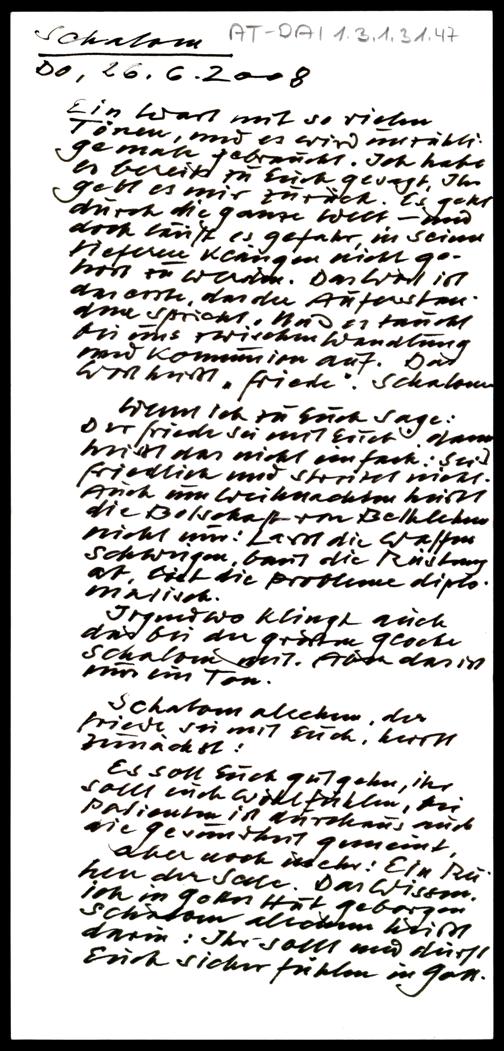 Schalom AT-DAI 1.3.1.31.47
Do, 26.6.2008
Ein Wort mit so vielen
Tönen, und es wird unzähli-
gemale gebraucht. Ich habe
es bereits zu Euch gesagt, Ihr
gebt es mir zurück. Es geht
durch die ganze Welt – und
doch läuft es gefahr, in seinen
tieferen Klängen nicht ge-
hört zu werden. Das Wort ist
das erste, das der Auferstan-
dene spricht. Und es taucht
bei uns zwischen Wandlung
und Kommunion auf. Das
Wort heißt „Friede". Schalom
Wenn ich zu Euch sage:
Der Friede sei mit Euch, dann
heißt das nicht einfach: Seid
friedlich und streitet nicht.
Auch um Weihnachten heißt
die Botschaft von Bethlehem
nicht nur: Lasst die Waffen
schweigen, baut die Rüstung
ab, löst die Probleme diplo-
matisch.
Irgendwo klingt auch
das bei der großen Glocke
Schalom mit. Aber das ist
nur ein Ton.
Schalom alechem, der
Friede sei mit Euch, heißt
zunächst:
Es soll Euch gut gehn, ihr
sollt euch wohlfühlen, bei
Patienten ist durchaus auch
die gesundheit gemeint,
aber noch mehr: Ein Ru-
hen der Seele. Das Wissen,
ich in Gottes Hut geborgen
Schalom alechem heißt
darin: Ihr sollt und dürft
Euch sicher fühlen in Gott.